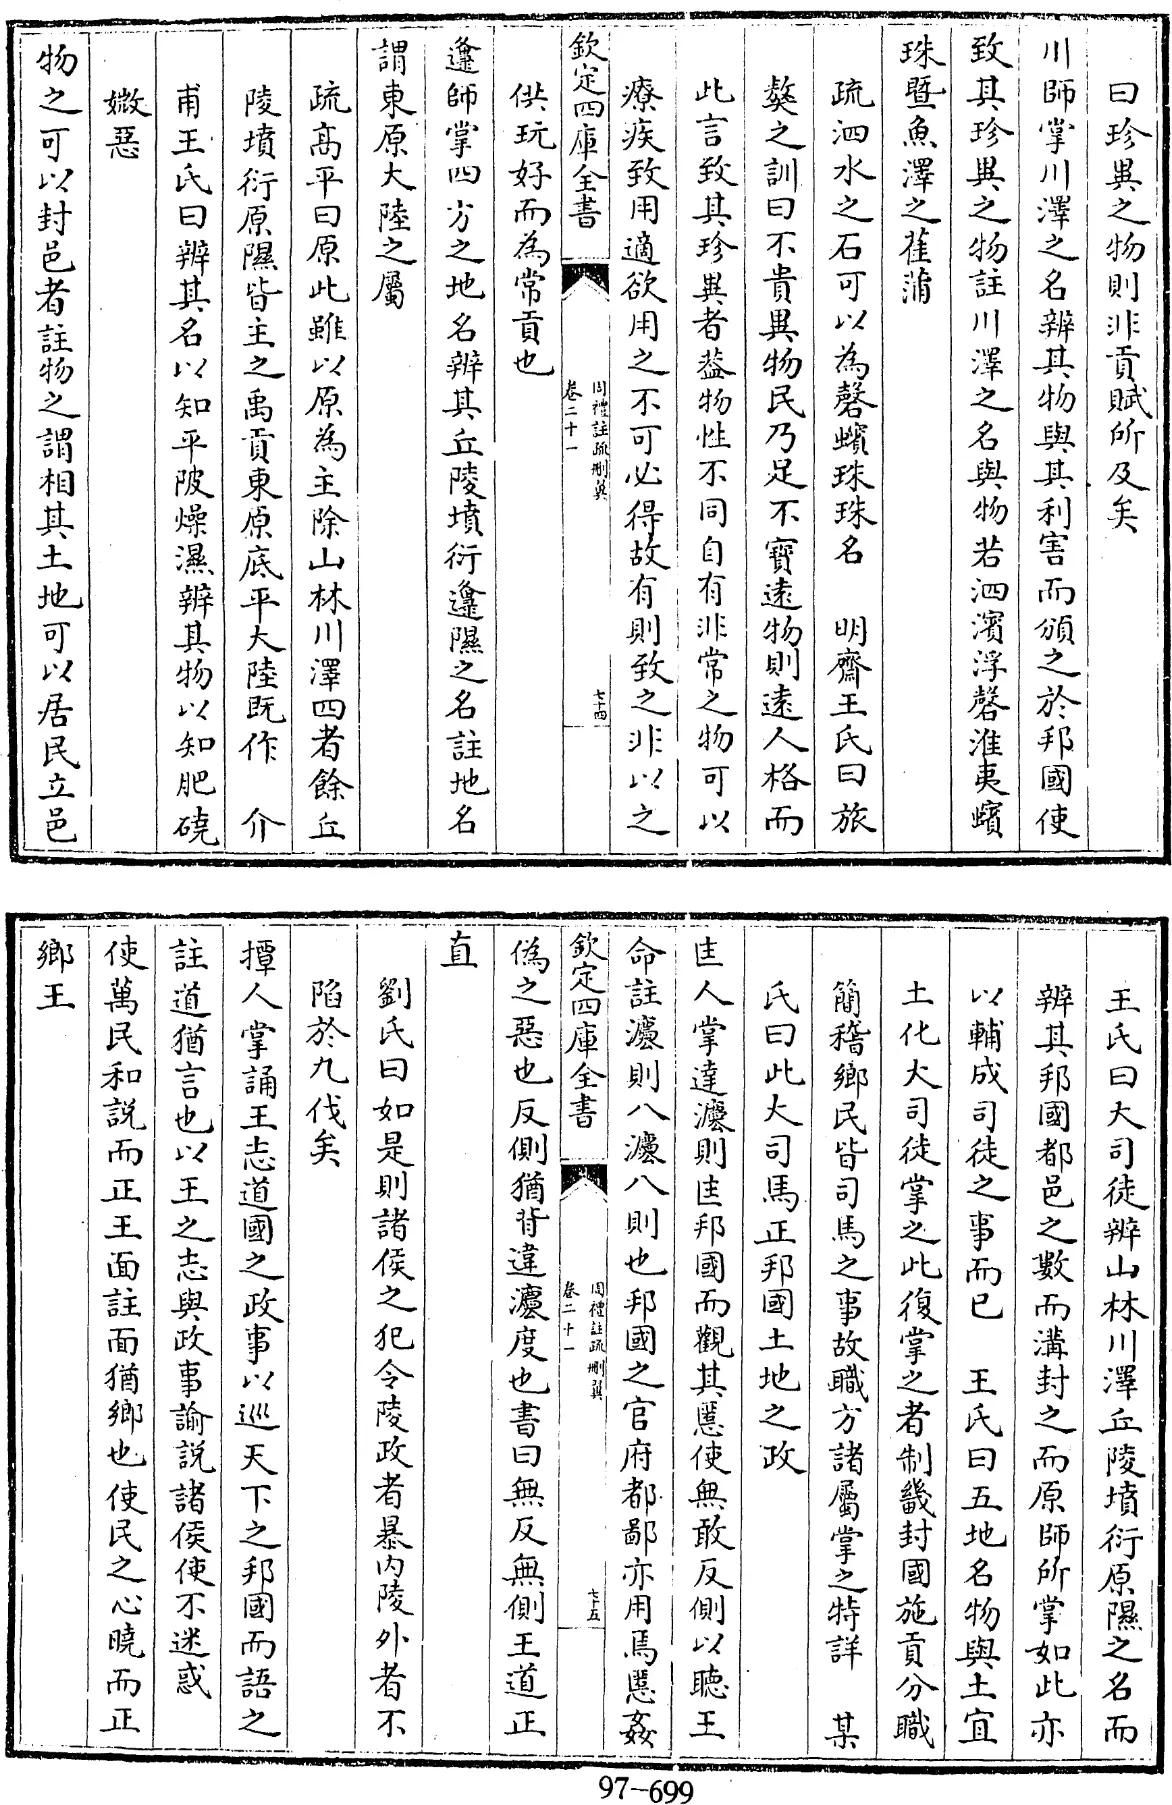 曰珍異之物則非貢賦所及矣
川師掌川澤之名辨其物與其利害而頒之於邦國使
致其珍異之物註川澤之名與物若泗濱浮磬淮夷蠙
珠暨魚澤之萑蒲
疏泗水之石可以為磬蠙珠珠名　明齋王氏曰旅
獒之訓曰不貴異物民乃足不寶遠物則遠人格而
此言致其珍異者葢物性不同自有非常之物可以
療疾致用適欲用之不可必得故有則致之非以之
欽定四庫全書
周禮註疏刪翼
卷二十一
七十四
供玩好而為常貢也
邍師掌四方之地名辨其丘陵墳衍邍隰之名註地名
謂東原大陸之屬
疏高平曰原此雖以原為主除山林川澤四者餘丘
陵墳衍原隰皆主之禹貢東原底平大陸既作　介
甫王氏曰辨其名以知平陂燥濕辨其物以知肥磽
媺惡
物之可以封邑者註物之謂相其土地可以居民立邑
王氏曰大司徒辨山林川澤丘陵墳衍原隰之名而
辨其邦國都邑之數而溝封之而原師所掌如此亦
以輔成司徒之事而已　王氏曰五地名物與土宜
土化大司徒掌之此復掌之者制畿封國施貢分職
簡稽鄉民皆司馬之事故職方諸屬掌之特詳　某
氏曰此大司馬正邦國土地之政
匡人掌達灋則匡邦國而觀其慝使無敢反側以聽王
命註灋則八灋八則也邦國之官府都鄙亦用焉慝姦
欽定四庫全書
周禮註疏刪翼
卷二十一
七十五
偽之惡也反側猶背違灋度也書曰無反無側王道正
直
劉氏曰如是則諸侯之犯令陵政者暴內陵外者不
陷於九伐矣
撢人掌誦王志道國之政事以巡天下之邦國而語之
註道猶言也以王之志與政事諭說諸侯使不迷惑
使萬民和說而正王面註面猶鄉也使民之心曉而正
鄉王
97-699